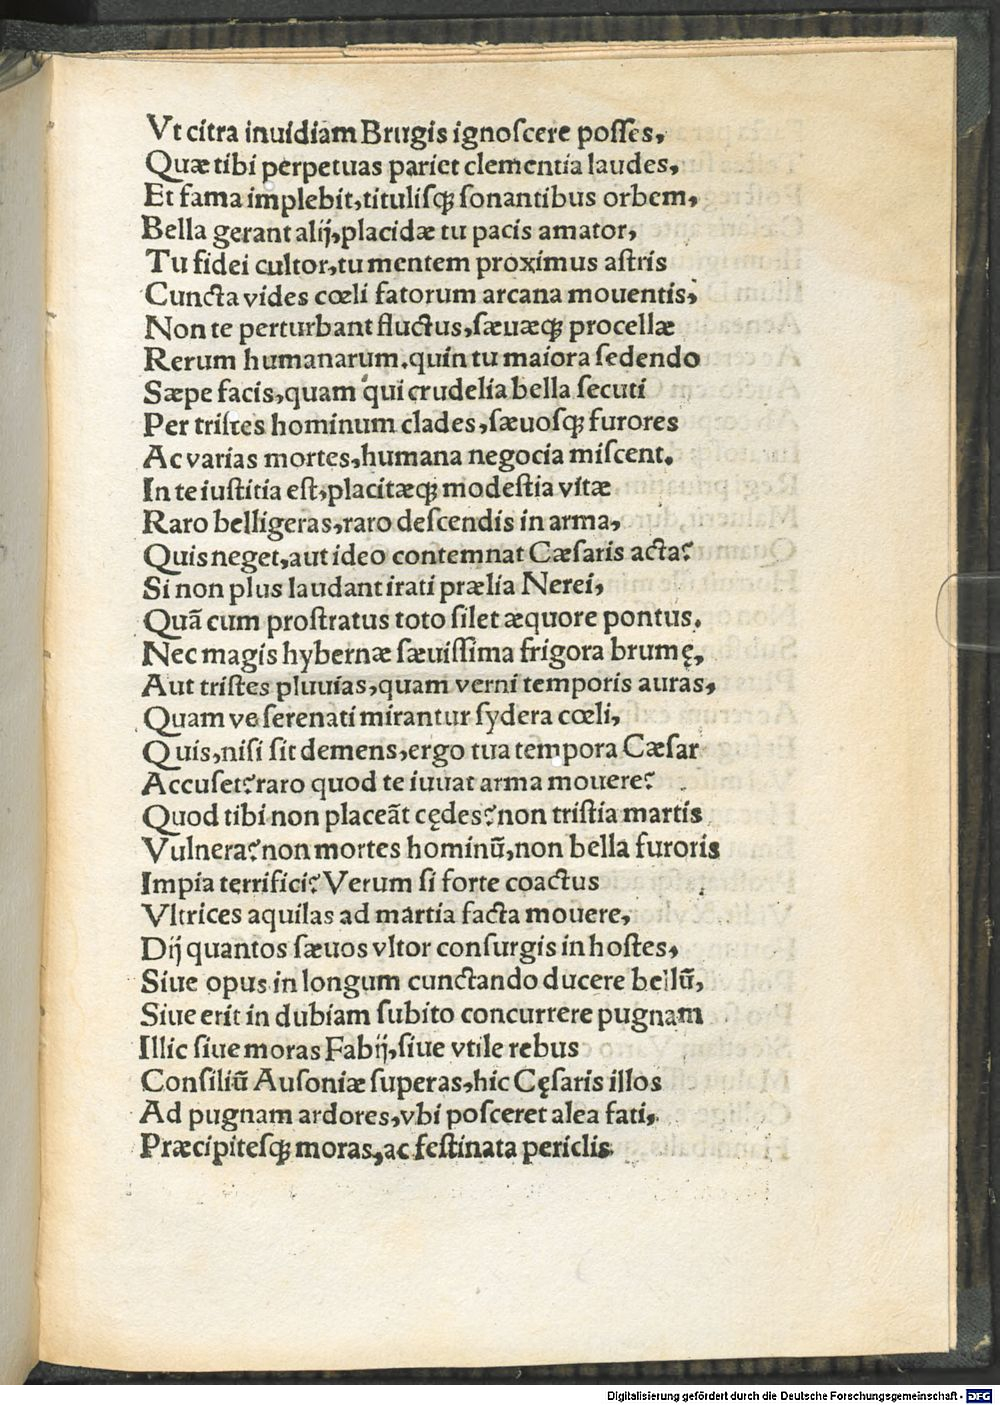 Vt citra inuidiam Brugis ignoſcere poſſes,
Quæ tibi perpetuas pariet clementia laudes,
Et fama implebit, tituliſqꝫ ſonantibus orbem,
Bella gerant alij, placidæ tu pacis amator,
Tu fidei cultor, tu mentem proximus aſtris
Cuncta vides cœli fatorum arcana mouentis,
Non te perturbant fluctus, ſæuæqꝫ procellæ
Rerum humanarum. quin tu maiora ſedendo
Sæpe facis, quam qui crudelia bella ſecuti
Per triſtes hominum clades, ſæuoſqꝫ furores
Ac varias mortes, humana negocia miſcent.
In te iuſtitia eſt, placitæqꝫ modeſtia vitæ
Raro belligeras, raro deſcendis in arma,
Quis neget, aut ideo contemnat Cæſaris acta?
Si non plus laudant irati prælia Nerei,
Quã cum proſtratus toto ſilet æquore pontus.
Nec magis hybernæ ſæuiſſima frigora brumę,
Aut triſtes pluuias, quam verni temporis auras,
Quam ve ſerenati mirantur ſydera cœli,
Quis, niſi ſit demens, ergo tua tempora Cæſar
Accuſet? raro quod te iuuat arma mouere?
Quod tibi non placeãt cędes? non triſtia martis
Vulnera? non mortes hominũ, non bella furoris
Impia terrifici? Verum ſi forte coactus
Vltrices aquilas ad martia facta mouere,
Dij quantos ſæuos vltor conſurgis in hoſtes,
Siue opus in longum cunctando ducere bellũ,
Siue erit in dubiam ſubito concurrere pugnam
Illic ſiue moras Fabij, ſiue vtile rebus
Conſiliũ Auſoniæ ſuperas, hic Cęſaris illos
Ad pugnam ardores, vbi poſceret alea fati,
Præcipiteſqꝫ moras, ac feſtinata periclis
Digitalisierung gefördert durch die Deutsche Forschungsgemeinschaft - DFG